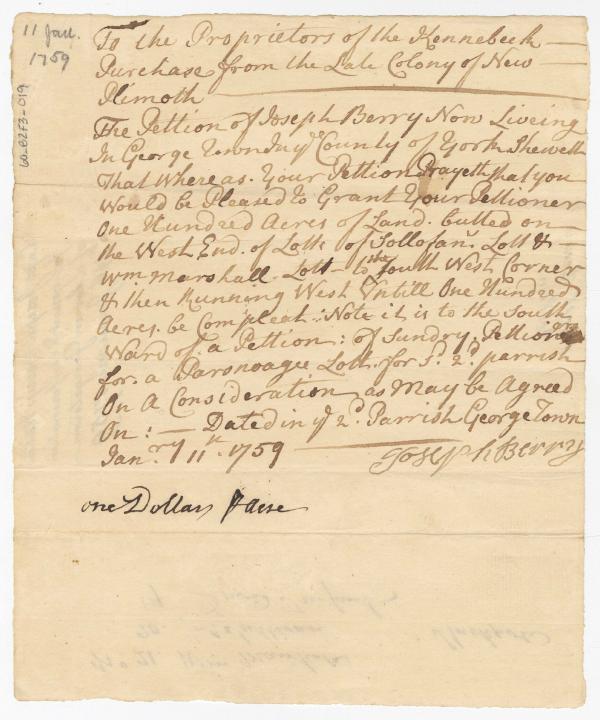 11 Jan.
1759
60-B2F3-019
To the Proprietors of the Kennebeck
Purchase from the Late Colony of New
Plimoth
The Pettion of Joseph Berry Now Liveing
In George Town In yͤ County of York Sheweth
That Where as. Your Pettion Prayeth that you
Would be Pleased to Grant Your Pettioner
One Hundred Acres of Land. butted on
the West End. of Lotts of Lott &
Wm. Marshall. Lott to the South West Corner
& then Running West Untill One Hundred
Acres. be Compleat: Note it is to the South
Ward of. a Pettion: of Sundry. Pettioners
for. a Parsonage Lott. for sd. 2d. parrish
On A Consideration as May be Agreed
On: — Dated in yͤ 2d. Parrish George Town
Janry 11th. 1759 Joseph Berry
one Dollar acre